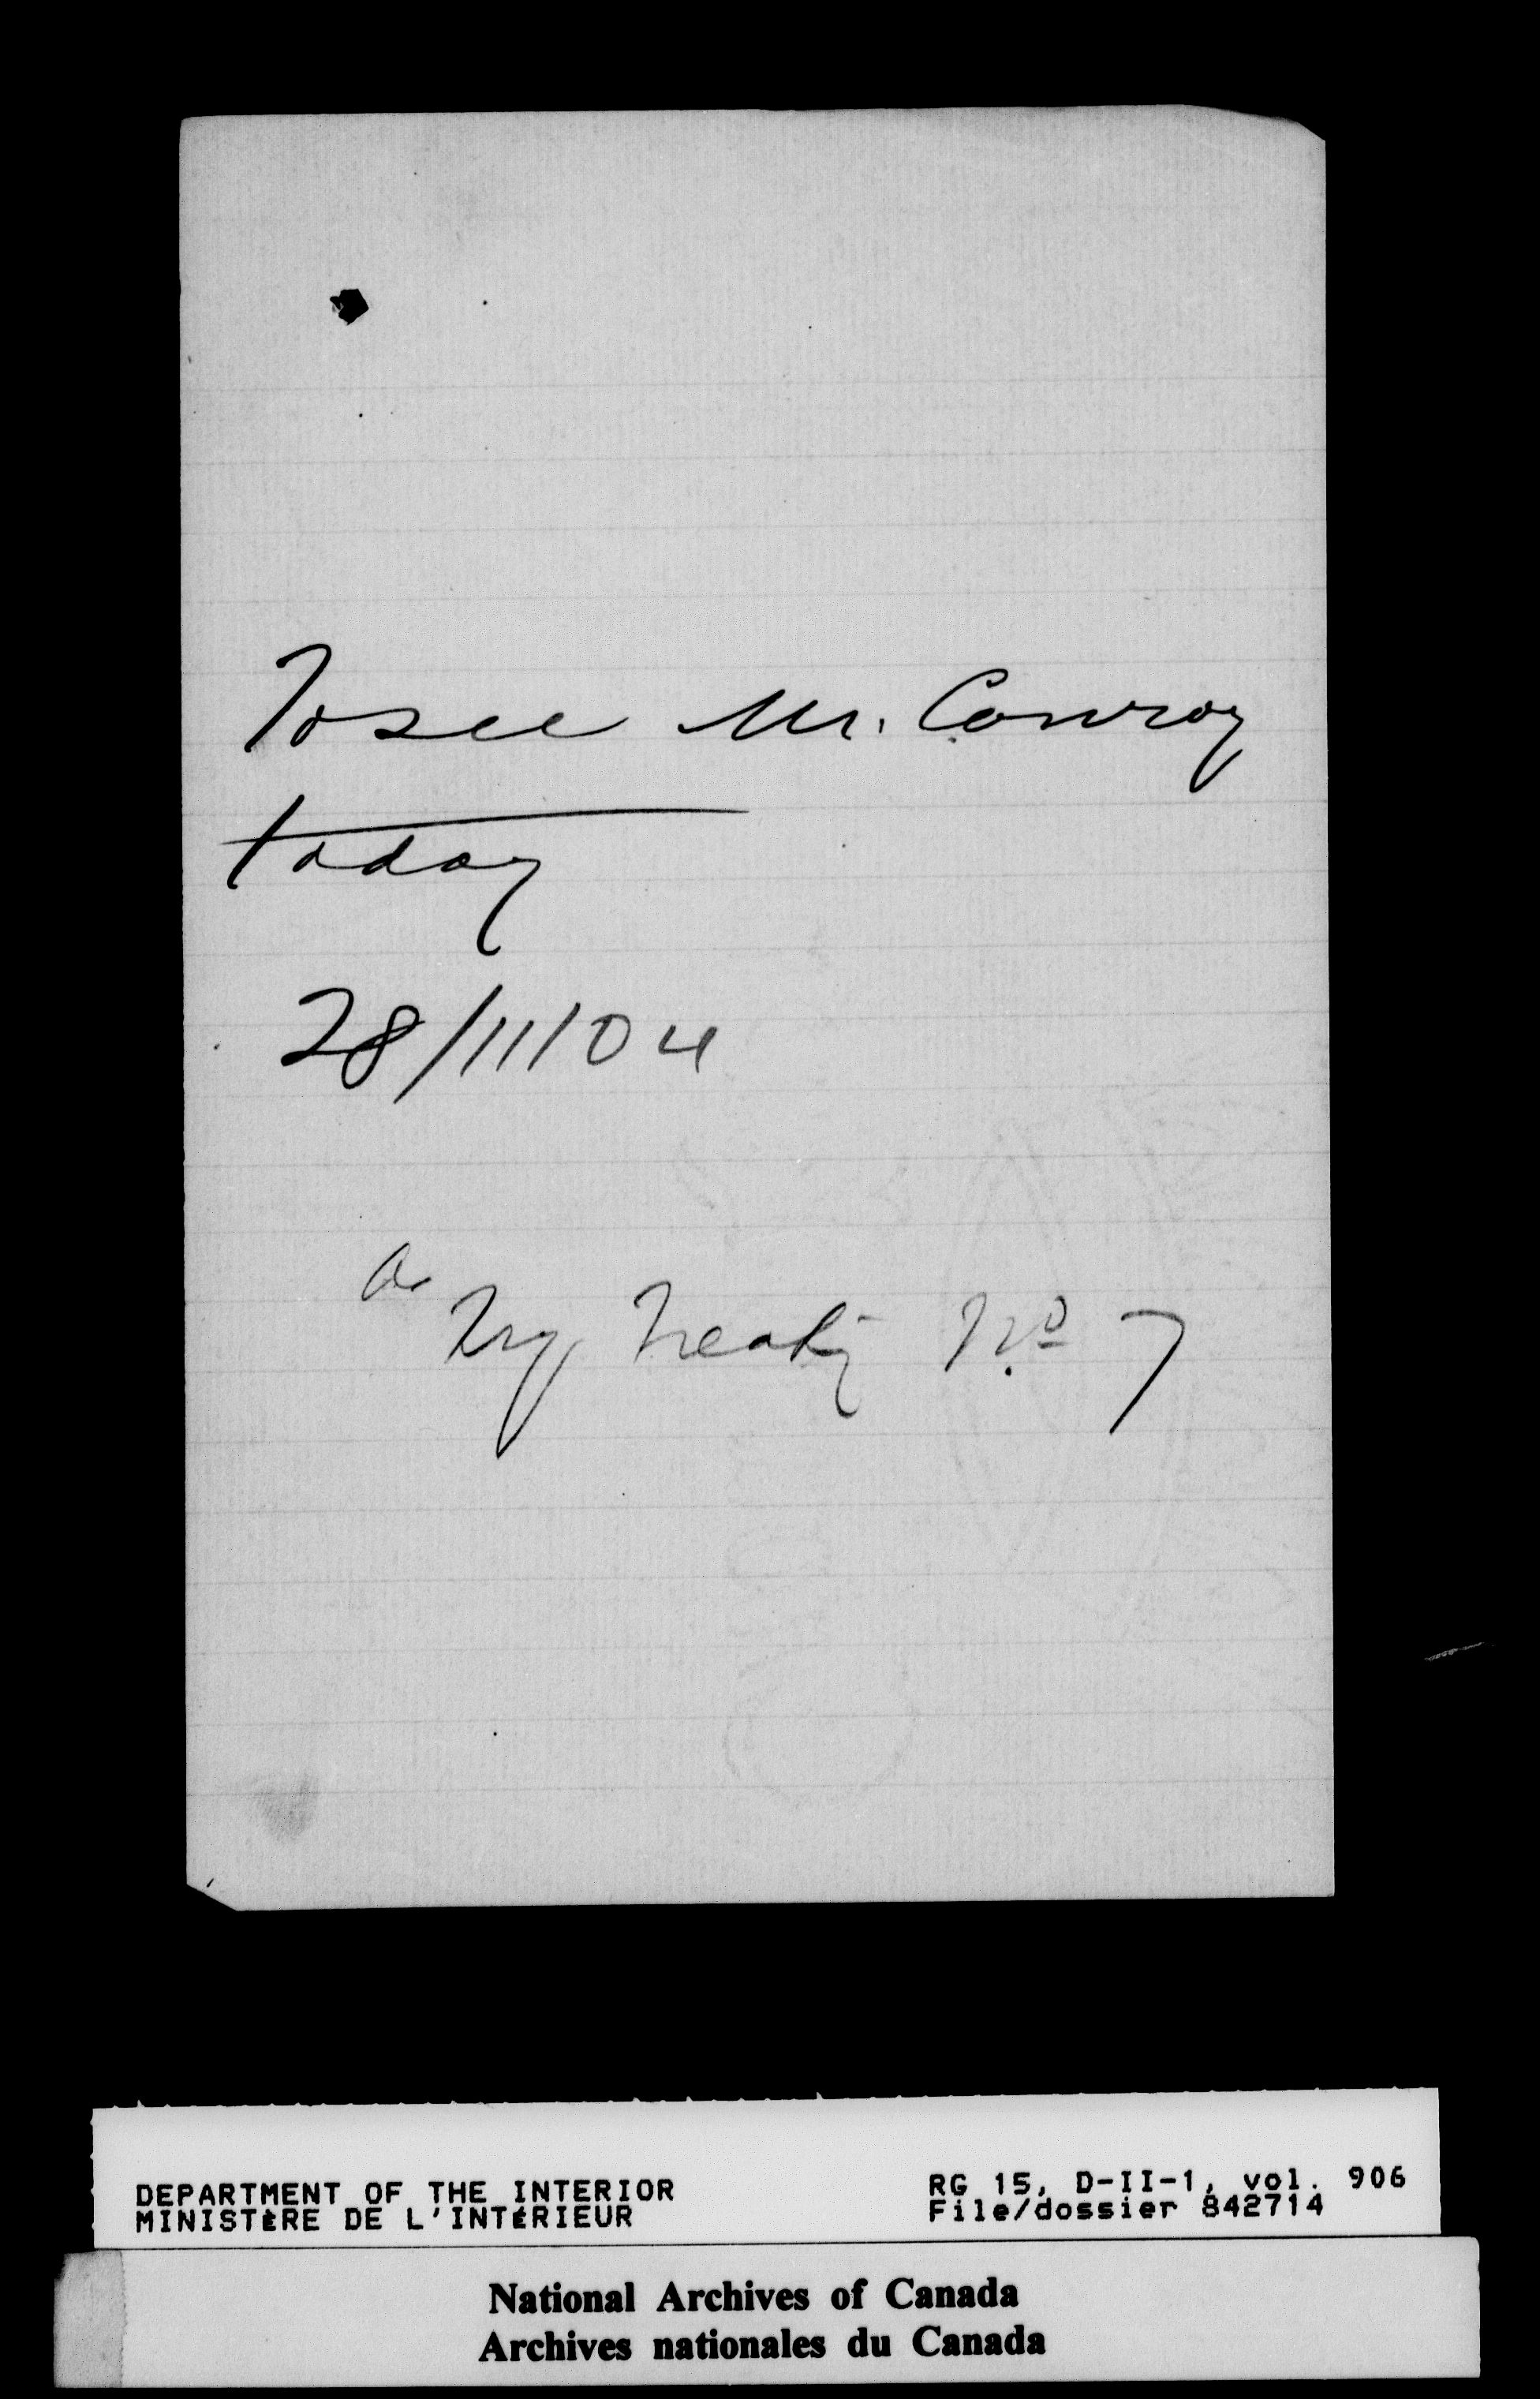 To see Mr. Conroy
today
28/11/04
Treaty No 7
DEPARTMENT OF THE INTERIOR
MINISTÈRE DE L'INTÉRIEUR
RG 15, D-II-1, vol. 906
File/dossier 842714
National Archives of Canada
Archives nationales du Canada